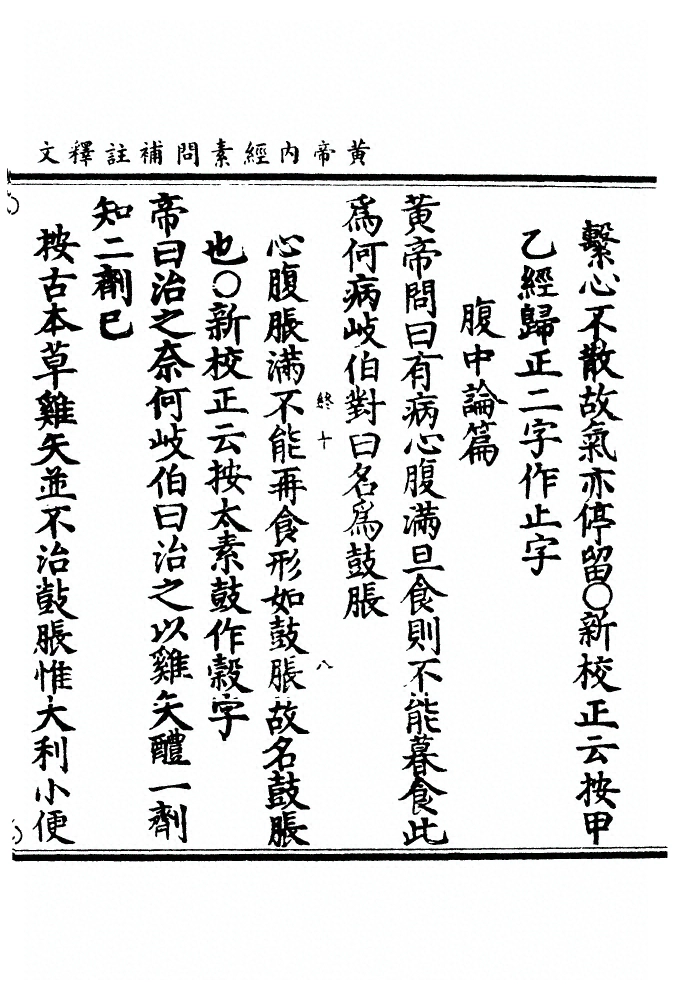 黄帝内經素問補註釋文
繫心不散故氣亦停留○新校正云按甲
乙經歸正二字作止字
腹中論篇
黄帝問曰有病心腹滿旦食則不能暮食此
爲何病岐伯對曰名爲鼓脹
終十 八
心腹脹滿不能再食形如鼓脹故名鼓脹
也○新校正云按太素鼓作穀字
帝曰治之奈何岐伯曰治之以雞矢醴一劑
知二劑已
按古本草雞矢並不治鼓脹惟大利小便